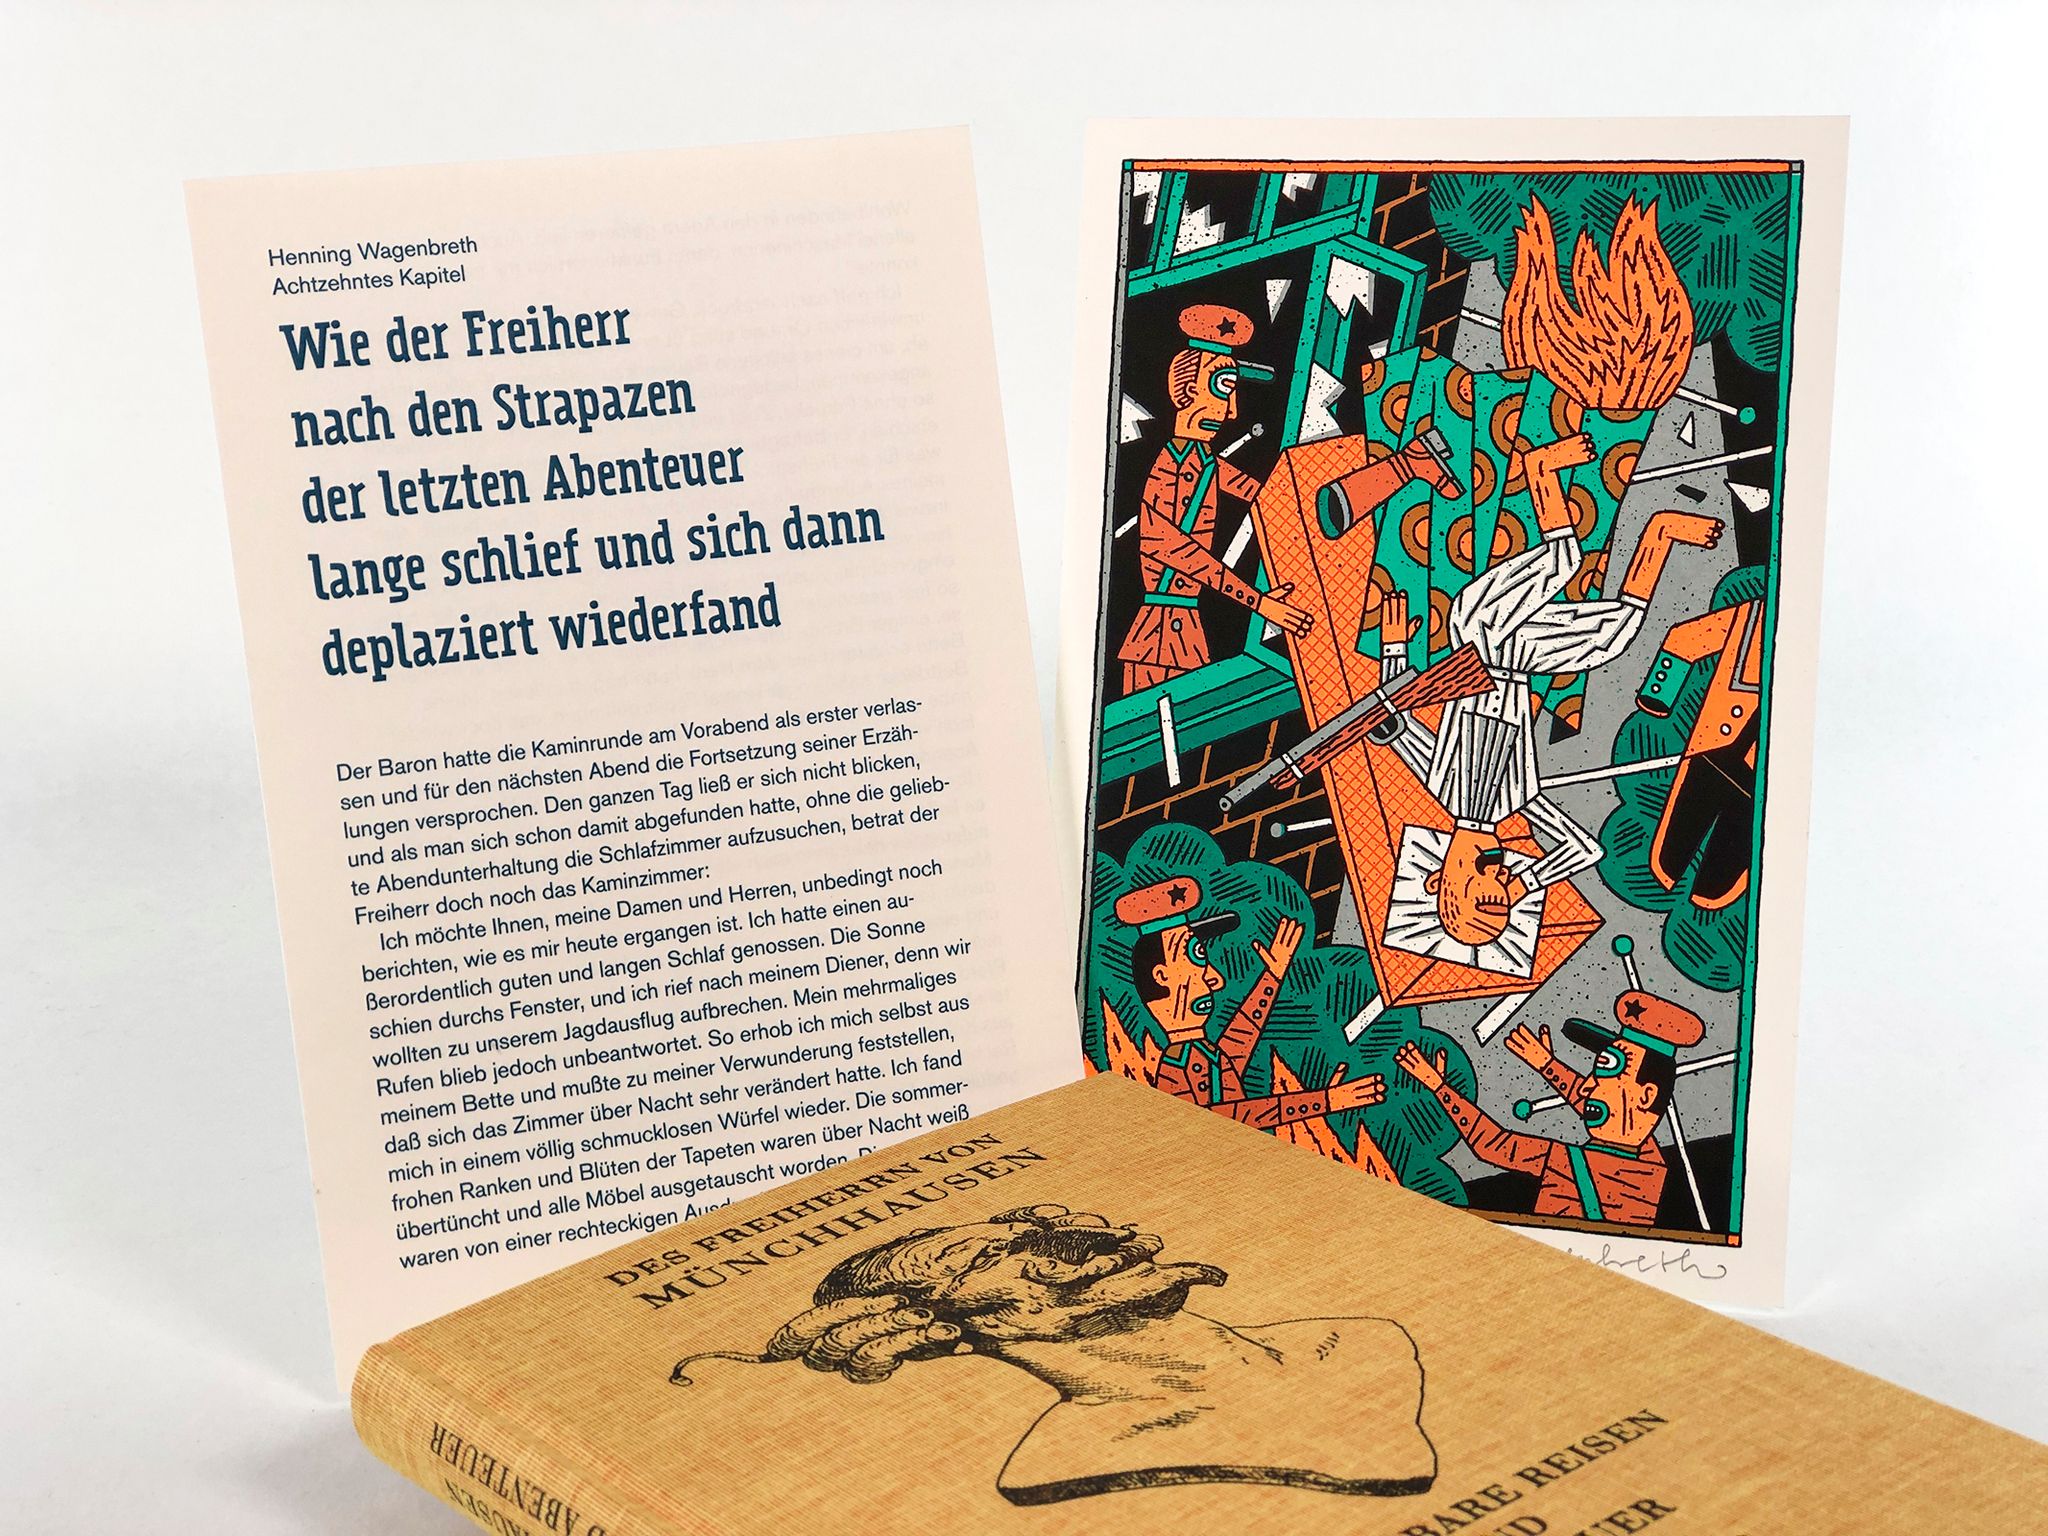 Henning Wagenbreth
Achtzehntes Kapitel
Wie der Freiherr
nach den Strapazen
der letzten Abenteuer
lange schlief und sich dann
deplaziert wiederfand
Der Baron hatte die Kaminrunde am Vorabend als erster verlas-
sen und für den nächsten Abend die Fortsetzung seiner Erzäh-
lungen versprochen. Den ganzen Tag ließ er sich nicht blicken,
und als man sich schon damit abgefunden hatte, ohne die gelieb-
te Abendunterhaltung die Schlafzimmer aufzusuchen, betrat der
Freiherr doch noch das Kaminzimmer:
Ich möchte Ihnen, meine Damen und Herren, unbedingt noch
berichten, wie es mir heute ergangen ist. Ich hatte einen au-
ßerordentlich guten und langen Schlaf genossen. Die Sonne
schien durchs Fenster, und ich rief nach meinem Diener, denn wir
wollten zu unserem Jagdausflug aufbrechen. Mein mehrmaliges
Rufen blieb jedoch unbeantwortet. So erhob ich mich selbst aus
meinem Bette und mußte zu meiner Verwunderung feststellen,
daß sich das Zimmer über Nacht sehr verändert hatte. Ich fand
mich in einem völlig schmucklosen Würfel wieder. Die sommer-
frohen Ranken und Blüten der Tapeten waren über Nacht weiß
übertüncht und alle Möbel ausgetauscht worden.
waren von einer rechteckigen
DES FREIHERRN VON
MÜNCHHAUSEN
BARE REISEN
ND
UER
ABENTEUER
AUSEN
D ABENTEUER